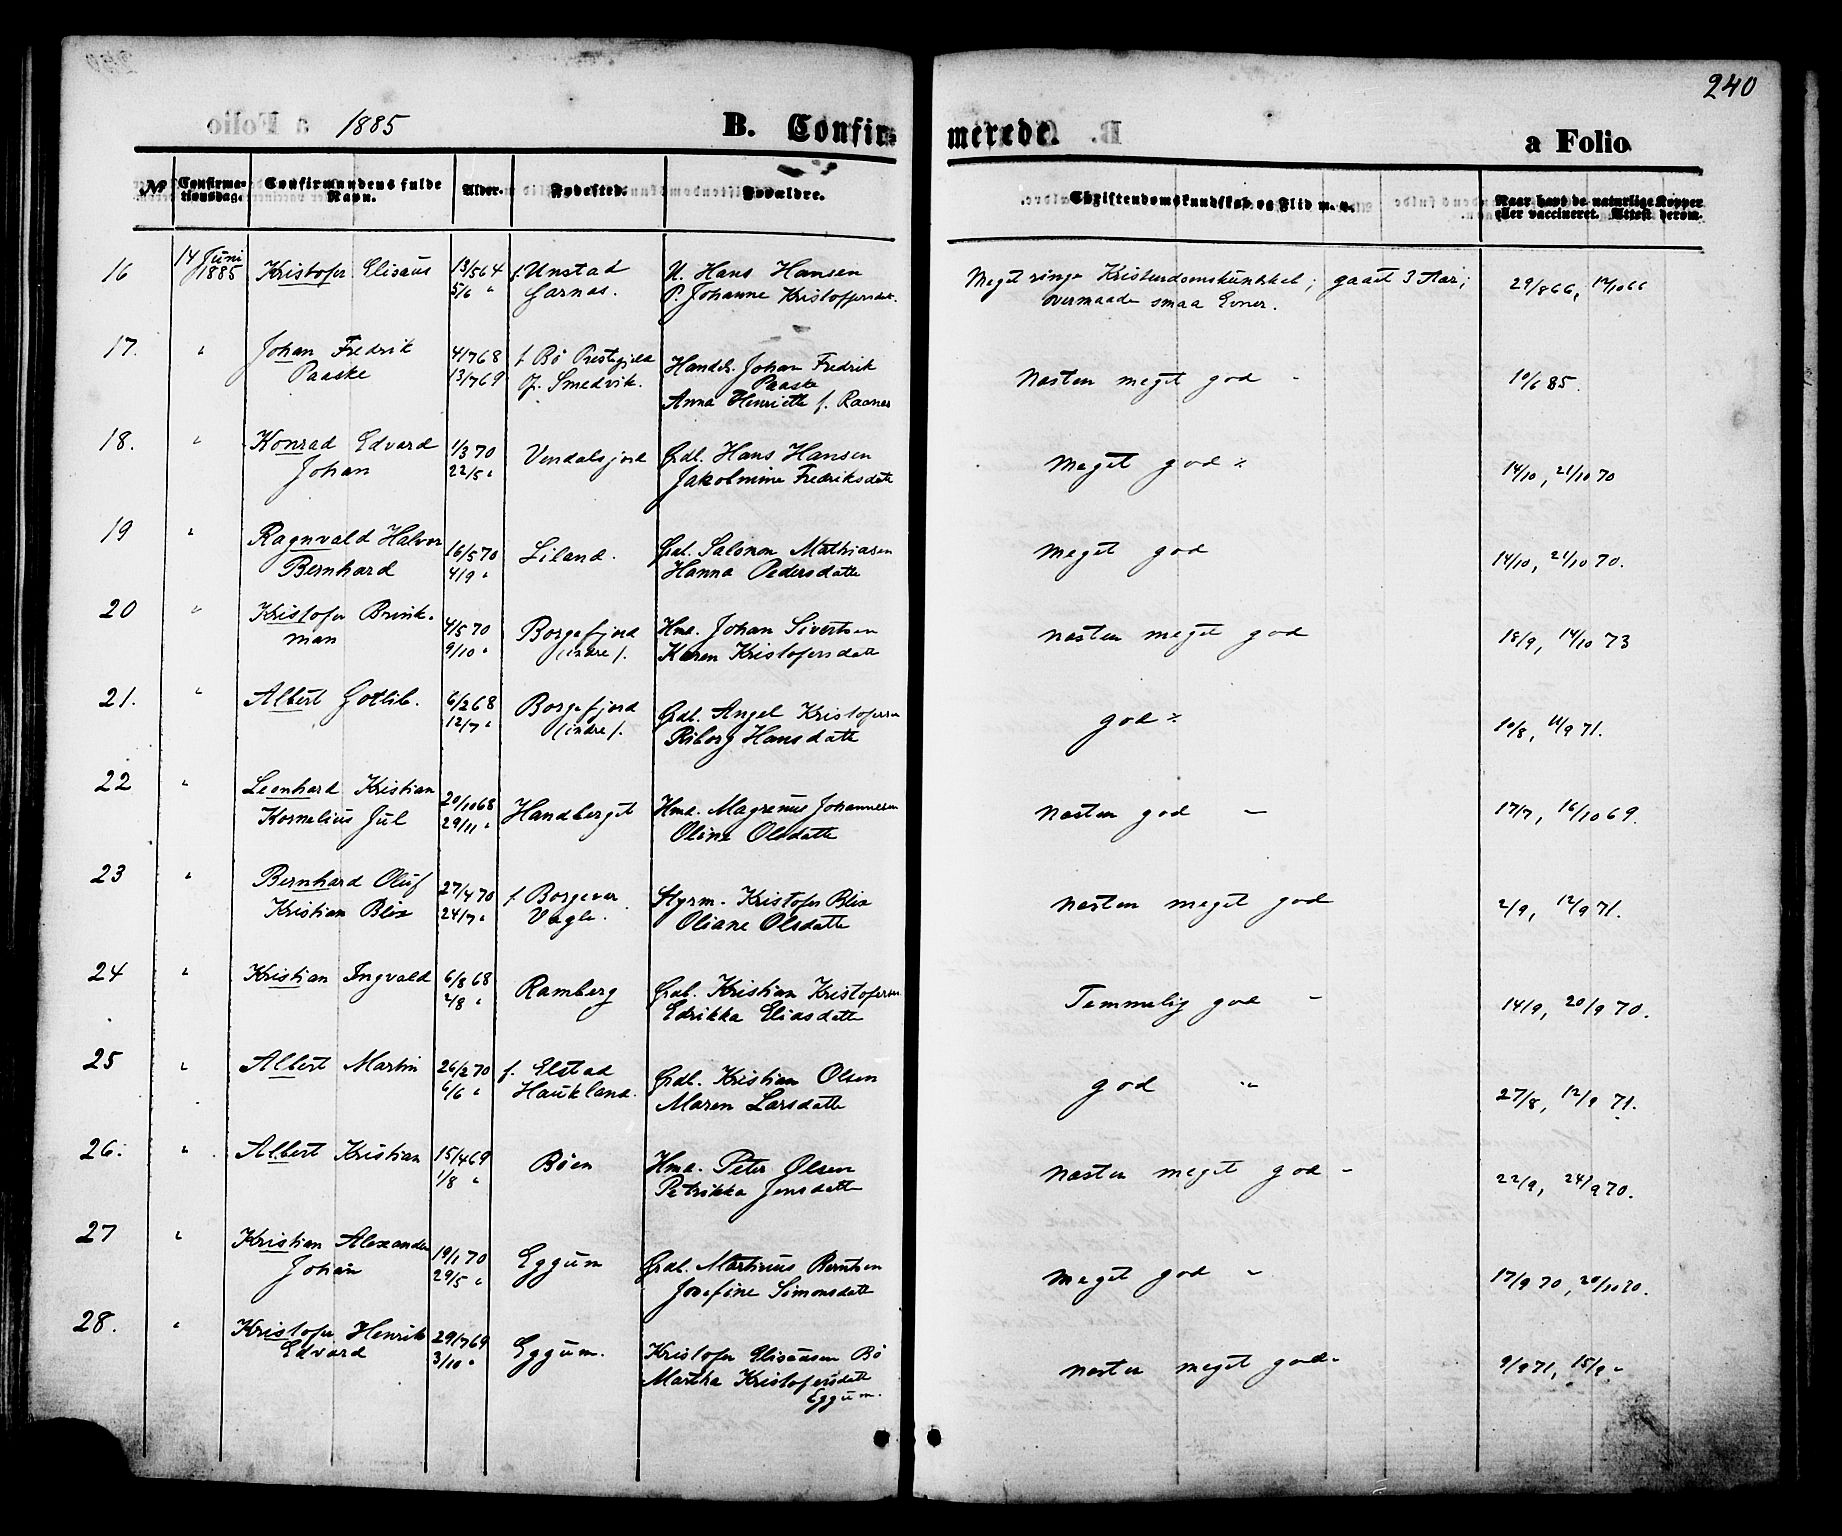 240
1885
B. Confir-
merede.
a Folio
No
Confirma-
tionsdag.
Confirmandens fulde
Navn.
Alder.
Fødested.
Forældre.
Christendomskundskab og Flid m. v.
Naar havt de naturlige Kopper
eller vaccineret. Attest derom.
16
14 Juni
1885
Kristofer Elisæus
13/5 64
5/6 "
f. Unstad
U. Hans Hansen
P. Johanne Kristoffersdat.
Meget ringe Kristendomskundskab; gaaet 3 Aar;
overmaade smaa Evner.
29/8 66, 14/10 66
17. "
Johan Fredrik
Paaske
4/7 68
13/7 69
f. Bø Prestegjeld
Of. Smedvik.
Handels. Johan Fredrik
Paaske
Anna Henriette f. Raanes
Næsten meget god -
10/6 85.
18. "
Konrad Edvard
Johan
1/3 70
22/5 "
Vendalsjord
Grdb. Hans Hansen
Jakobmine Fredriksdatte
Meget god
14/10, 21/10 70
19 "
Ragnvald Halvor
Bernhard
16/5 70
4/9 "
Liland.
Grdb. Salomon Mathiasen
Hanna Pedersdatte
Meget god
14/10, 21/10 70.
20 "
Kristofer Brink-
man
4/5 70
9/10 "
Borgefjord
(indre).
Hmd. Johan Sivertsen
Karen Kristofersdatte
næsten meget god
18/9, 14/10 73
21. "
Albert Gotlib.
6/2 68
12/7 "
Borgefjord
(indre).
Grdb. Angel Kristofersen
Riborg Hansdatte
god
10/8, 11/9 71.
22 "
Leonhard Kristian
Kornelius Jul
20/10 68
29/11 "
Handberget
Hmd. Magranus Johannesen
Oline Olsdatte
Næsten god -
17/7, 16/10 69.
23 "
Bernhard Oluf
Kristian Blix
27/4 70
24/7 "
f. Borgevær
Vagle.
Styrm. Kristofer Blix
Oliane Olsdatte
Næsten meget god
2/9, 12/9 71.
24 "
Kristian Ingvald
6/8 68
2/8 "
Ramberg
Grdb. Kristian Kristofersen
Edrikka Eliasdatte
Temmelig god -
14/9, 20/9 70.
25 "
Albert Martin
26/2 70
6/6 "
f. Elstad
Haukland.
Grdb. Kristian Olsen
Maren Larsdatte
god "
27/8, 12/9 71.
26. "
Albert Kristian
15/4 69
1/8 "
Bøen
Hmd. Peter Olsen
Petrikka Jensdatte
Næsten meget god -
22/9, 24/9 70.
27 "
Kristian Alexander
Johan
19/1 70
29/5 "
Eggum
Grdb. Martinus Berntsen
Josefine Simonsdatte
Meget god -
17/9 70, 20/10 70.
28. "
Kristofer Henrik
Edvard
29/7 69
3/10 "
Eggum.
Kristofer Elisæusen Bø
Martha Kristofersdatte
Eggum.
Næsten meget god -
9/9 71, 15/9 "